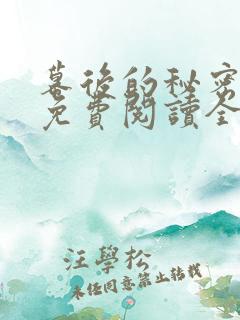 幕後的秘密
免費閱讀全
汪學松
未经同意禁止转载